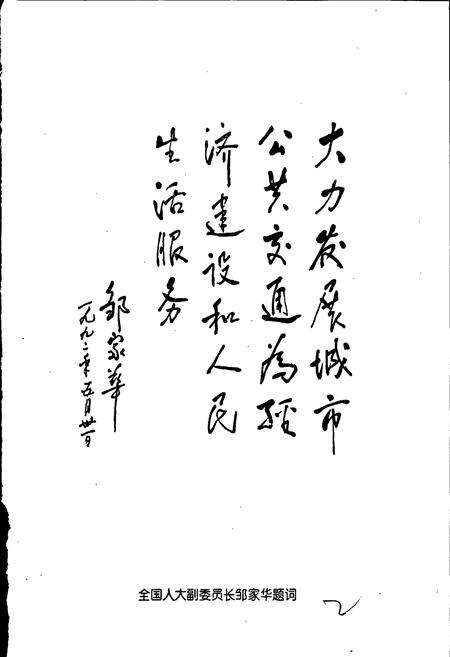 大力发展城市
公共交通為经
济建设和人民
生活服务
邹家华
一九九二年五月卅一日
全国人大副委员长邹家华题词
2